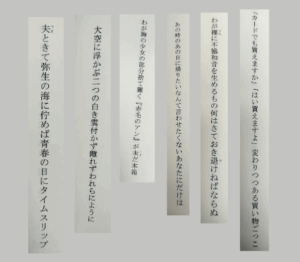 「カードでも買えますか」「はい買えますよ」変わりつつある買い物ごっこ
わが裡に不協和音を生めるもの何はさておき退けねばならぬ
あの時のあの日に還りたいなんて言わせたくないあなたにだけは
わが胸の少女の部分捨て難く『赤毛のアン』が未だ本箱
大空に浮かぶ二つの白き雲付かず離れずわれらにように
夫ときて弥生の海に佇めば青春の日にタイムスリップ